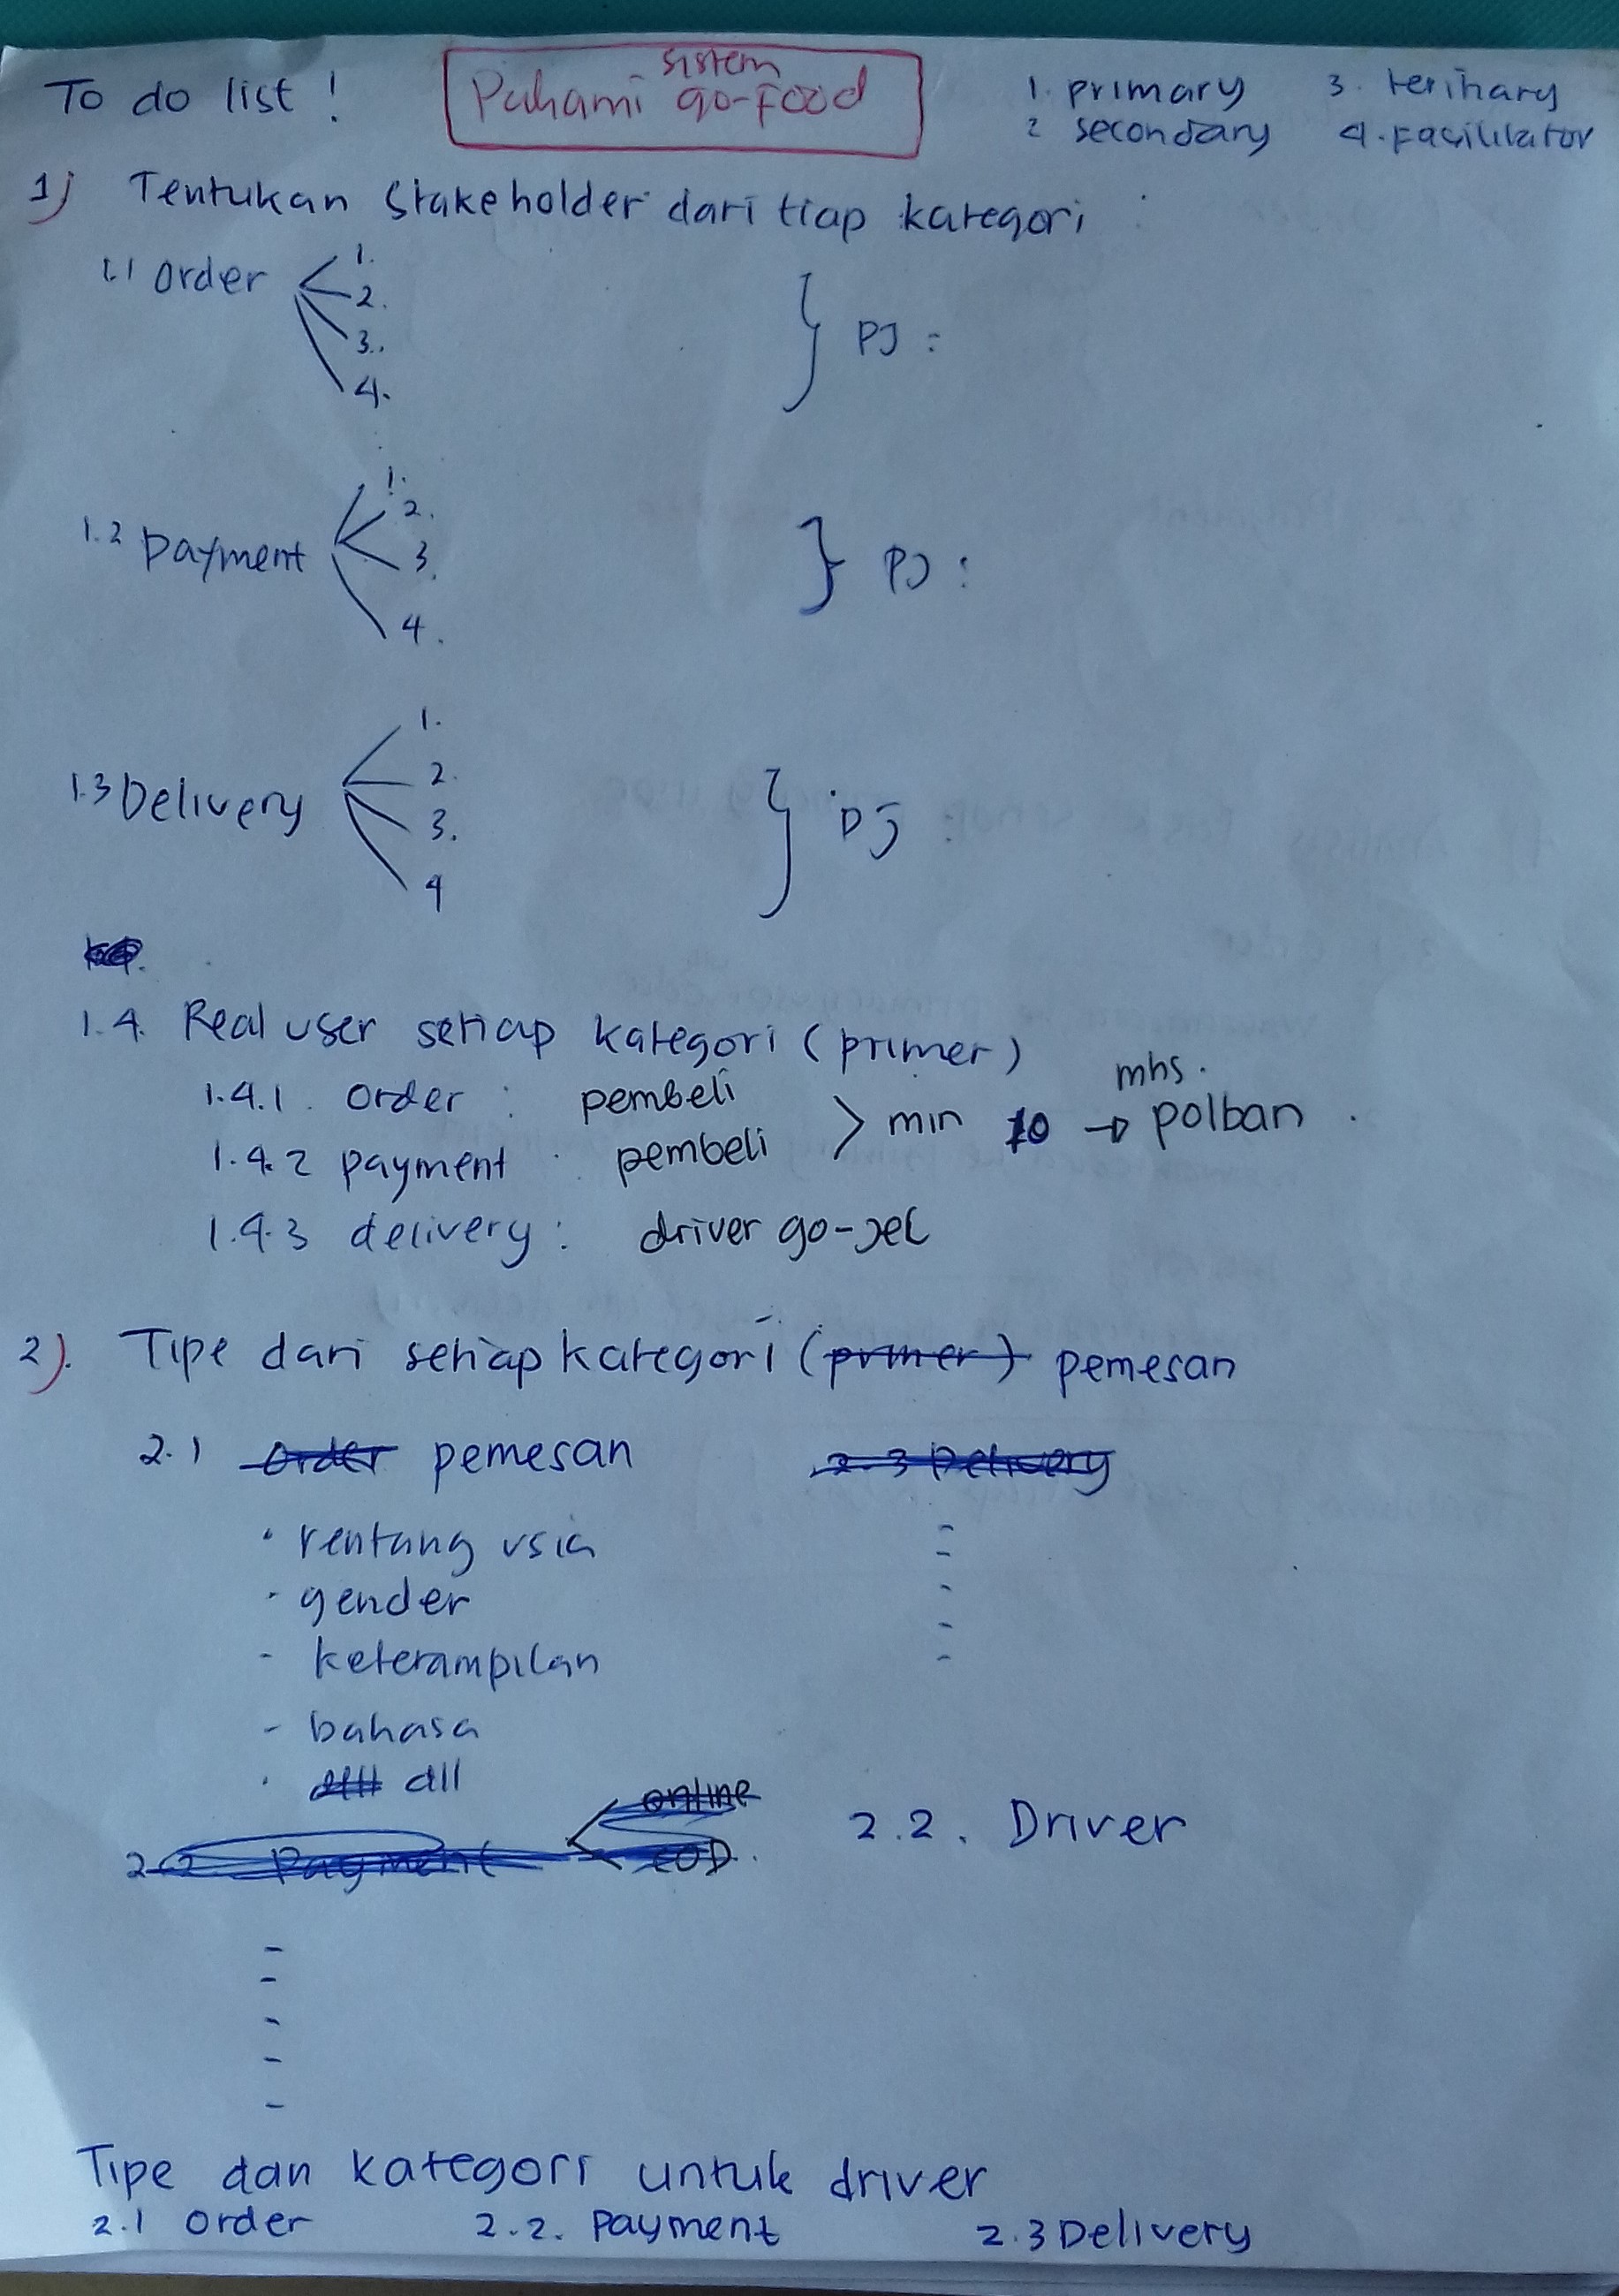 To do list !
Pahami sistem go-food
1. primary 3. tertihary
2 secondary 4. Facilitator
1) Tentukan Stakeholder dari tiap kategori :
1.1 Order
1.
2.
3.
4.
} PJ :
1.2 payment
1.
2.
3.
4.
} PJ :
1.3 Delivery
1.
2.
3.
4
} PJ
1.4. Real user setiap kategori (primer)
1.4.1. order : pembeli
1.4.2 payment : pembeli
> min 10 → mhs. polban.
1.4.3 delivery : driver go-jek
2). Tipe dari setiap kategori (primer) pemesan
2.1 Order pemesan
2.3 Delivery
- rentang usia
- gender
- keterampilan
- bahasa
- dll
2.2 Payment
online
COD.
2.2. Driver
Tipe dan kategori untuk driver
2.1 Order 2.2. Payment 2.3 Delivery